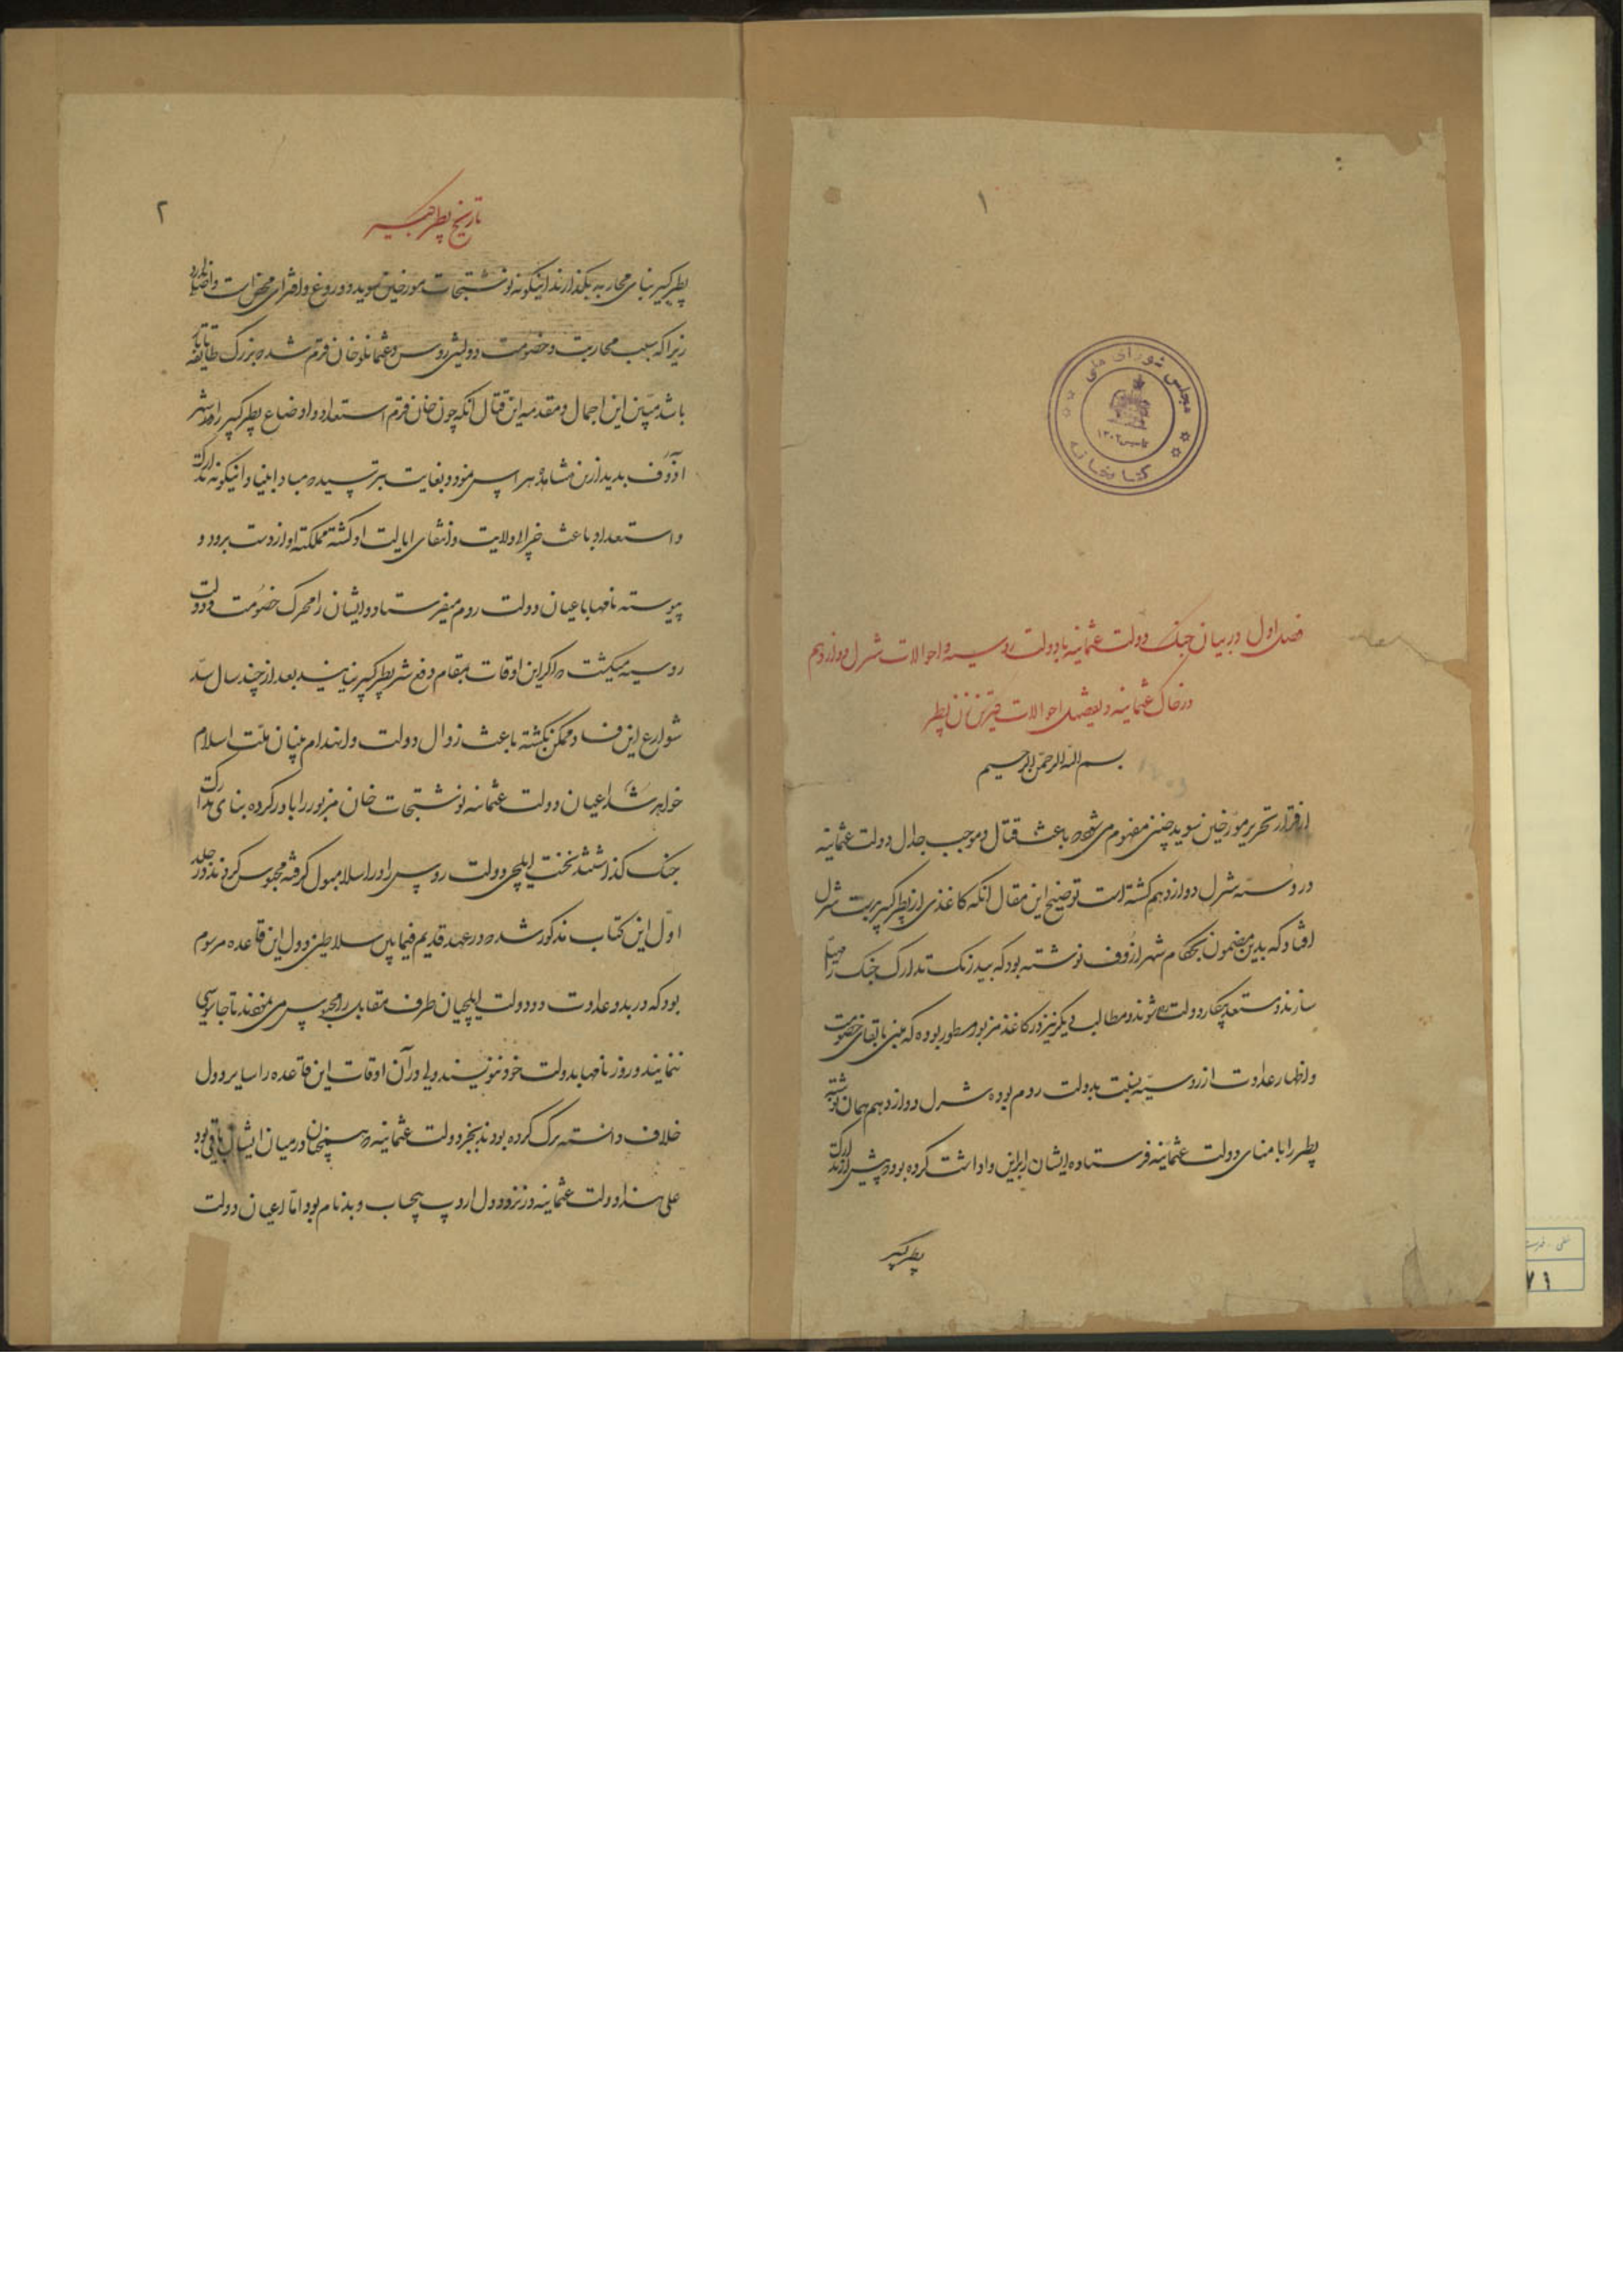 ۱
مجلس شورای ملی
تاسیس ۱۳۰۲
کتابخانه
فصل اول در بیان جنک دولت عثمانیه با دولت روسیه و احوالات شرل دوازدهم
در خاک عثمانیه و بعضی احوالات زن پطر
بسم الله الرحمن الرحیم
از قرار تحریر مورخین سوید چنین مفهوم می شود که باعث قتال و موجب جدال دولت عثمانیه
و روسیه شرل دوازدهم کشته است توضیح این مقال آنکه کاغذی از پطر کبیر بدست شرل
افتاد که بدین مضمون بحکام شهر ازوف نوشته بود که بیدرنک تدارک جنک را مهیا
سازند و مستعد پیکار دولت روم شوند و مطالب دیکر نیز در کاغذ مزبور مسطور بوده که مبنی بابقای خصومت
و اظهار عداوت از روسیه نسبت بدولت روم بوده شرل دوازدهم همان نوشته
پطر را بامنای دولت عثمانیه فرستاده ایشان را براین واداشت کرده بود که پیش از تدارک
پطر کبیر
۲
تاریخ پطر کبیر
پطر کبیر بنای محاربه بکذارند اینکونه نوشتجات مورخین سوید دروغ و افترای محض است و اصلی ندارد
زیرا که سبب محاربت و خصومت دولتین روس و عثمانلو خان قرم شد که بزرک طایفه تاتار
باشد مبین این اجمال و مقدمه این قتال آنکه چون خان قرم استعداد و اوضاع پطر کبیر را در شهر
آذوف بدید ازین مشاهده هراس نمود و بغایت بترسید که مبادا بنیاد اینکونه تدارک
و استعداد باعث خرابی ولایت و انتفای ایالت او کشته مملکت او از دست برود و
پیوسته نامها باعیان دولت روم میفرستاد و ایشان را محرک خصومت دولت
روسیه میکشت که اکر این اوقات بمقام دفع شر پطر کبیر نیایند بعد از چند سال سد
شوارع این فساد ممکن نکشته باعث زوال دولت و انهدام بنیان ملت اسلام
خواهد شد اعیان دولت عثمانیه نوشتجات خان مزبور را باور کرده بنای تدارک
جنک کذاشتند نخست ایلچی دولت روس را در اسلامبول کرفته محبوس کردند در جلد
اول این کتاب مذکور شد که در عهد قدیم فیمابین سلاطین و دول این قاعده مرسوم
بود که در بدو عداوت دو دولت ایلچیان طرف مقابل را محبوس می نمودند تا جاسوسی
ننمایند و روزنامها بدولت خود ننویسند ولی در آن اوقات این قاعده را سایر دول
خلاف دانسته ترک کرده بودند بجز دولت عثمانیه که همچنان در میان ایشان باقی بود
علی هذا دولت عثمانیه در نزد دول اروپ بیحساب و بدنام بود اما اعیان دولت